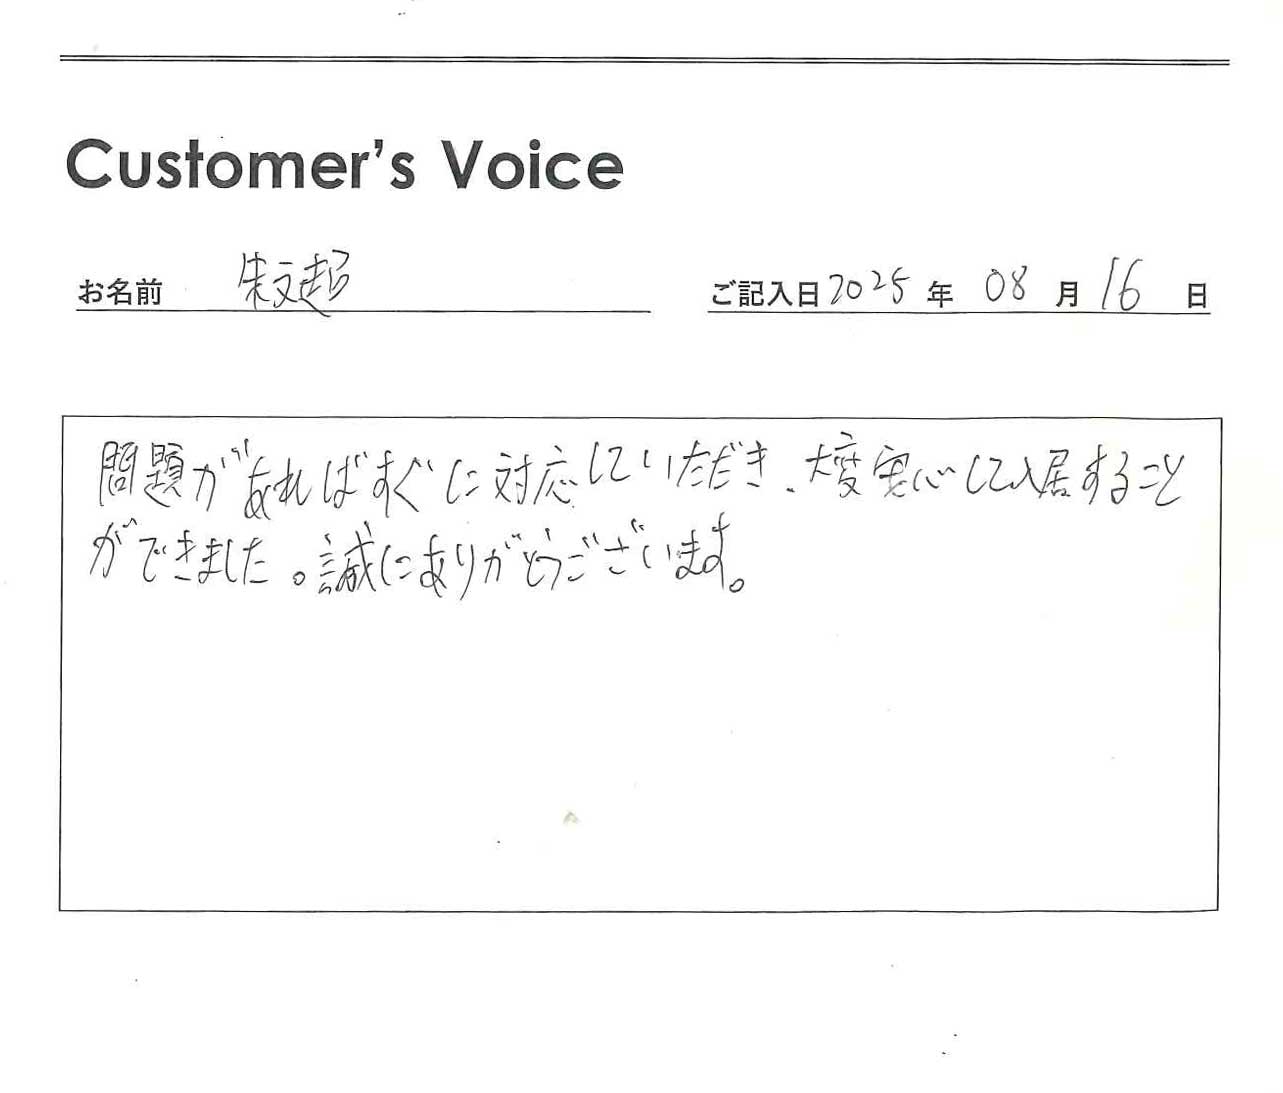 Customer's Voice
お名前 朱文超 ご記入日 2025 年 08 月 16 日
問題があればすぐに対応していただき、大変安心して入居すること
ができました。誠にありがとうございます。